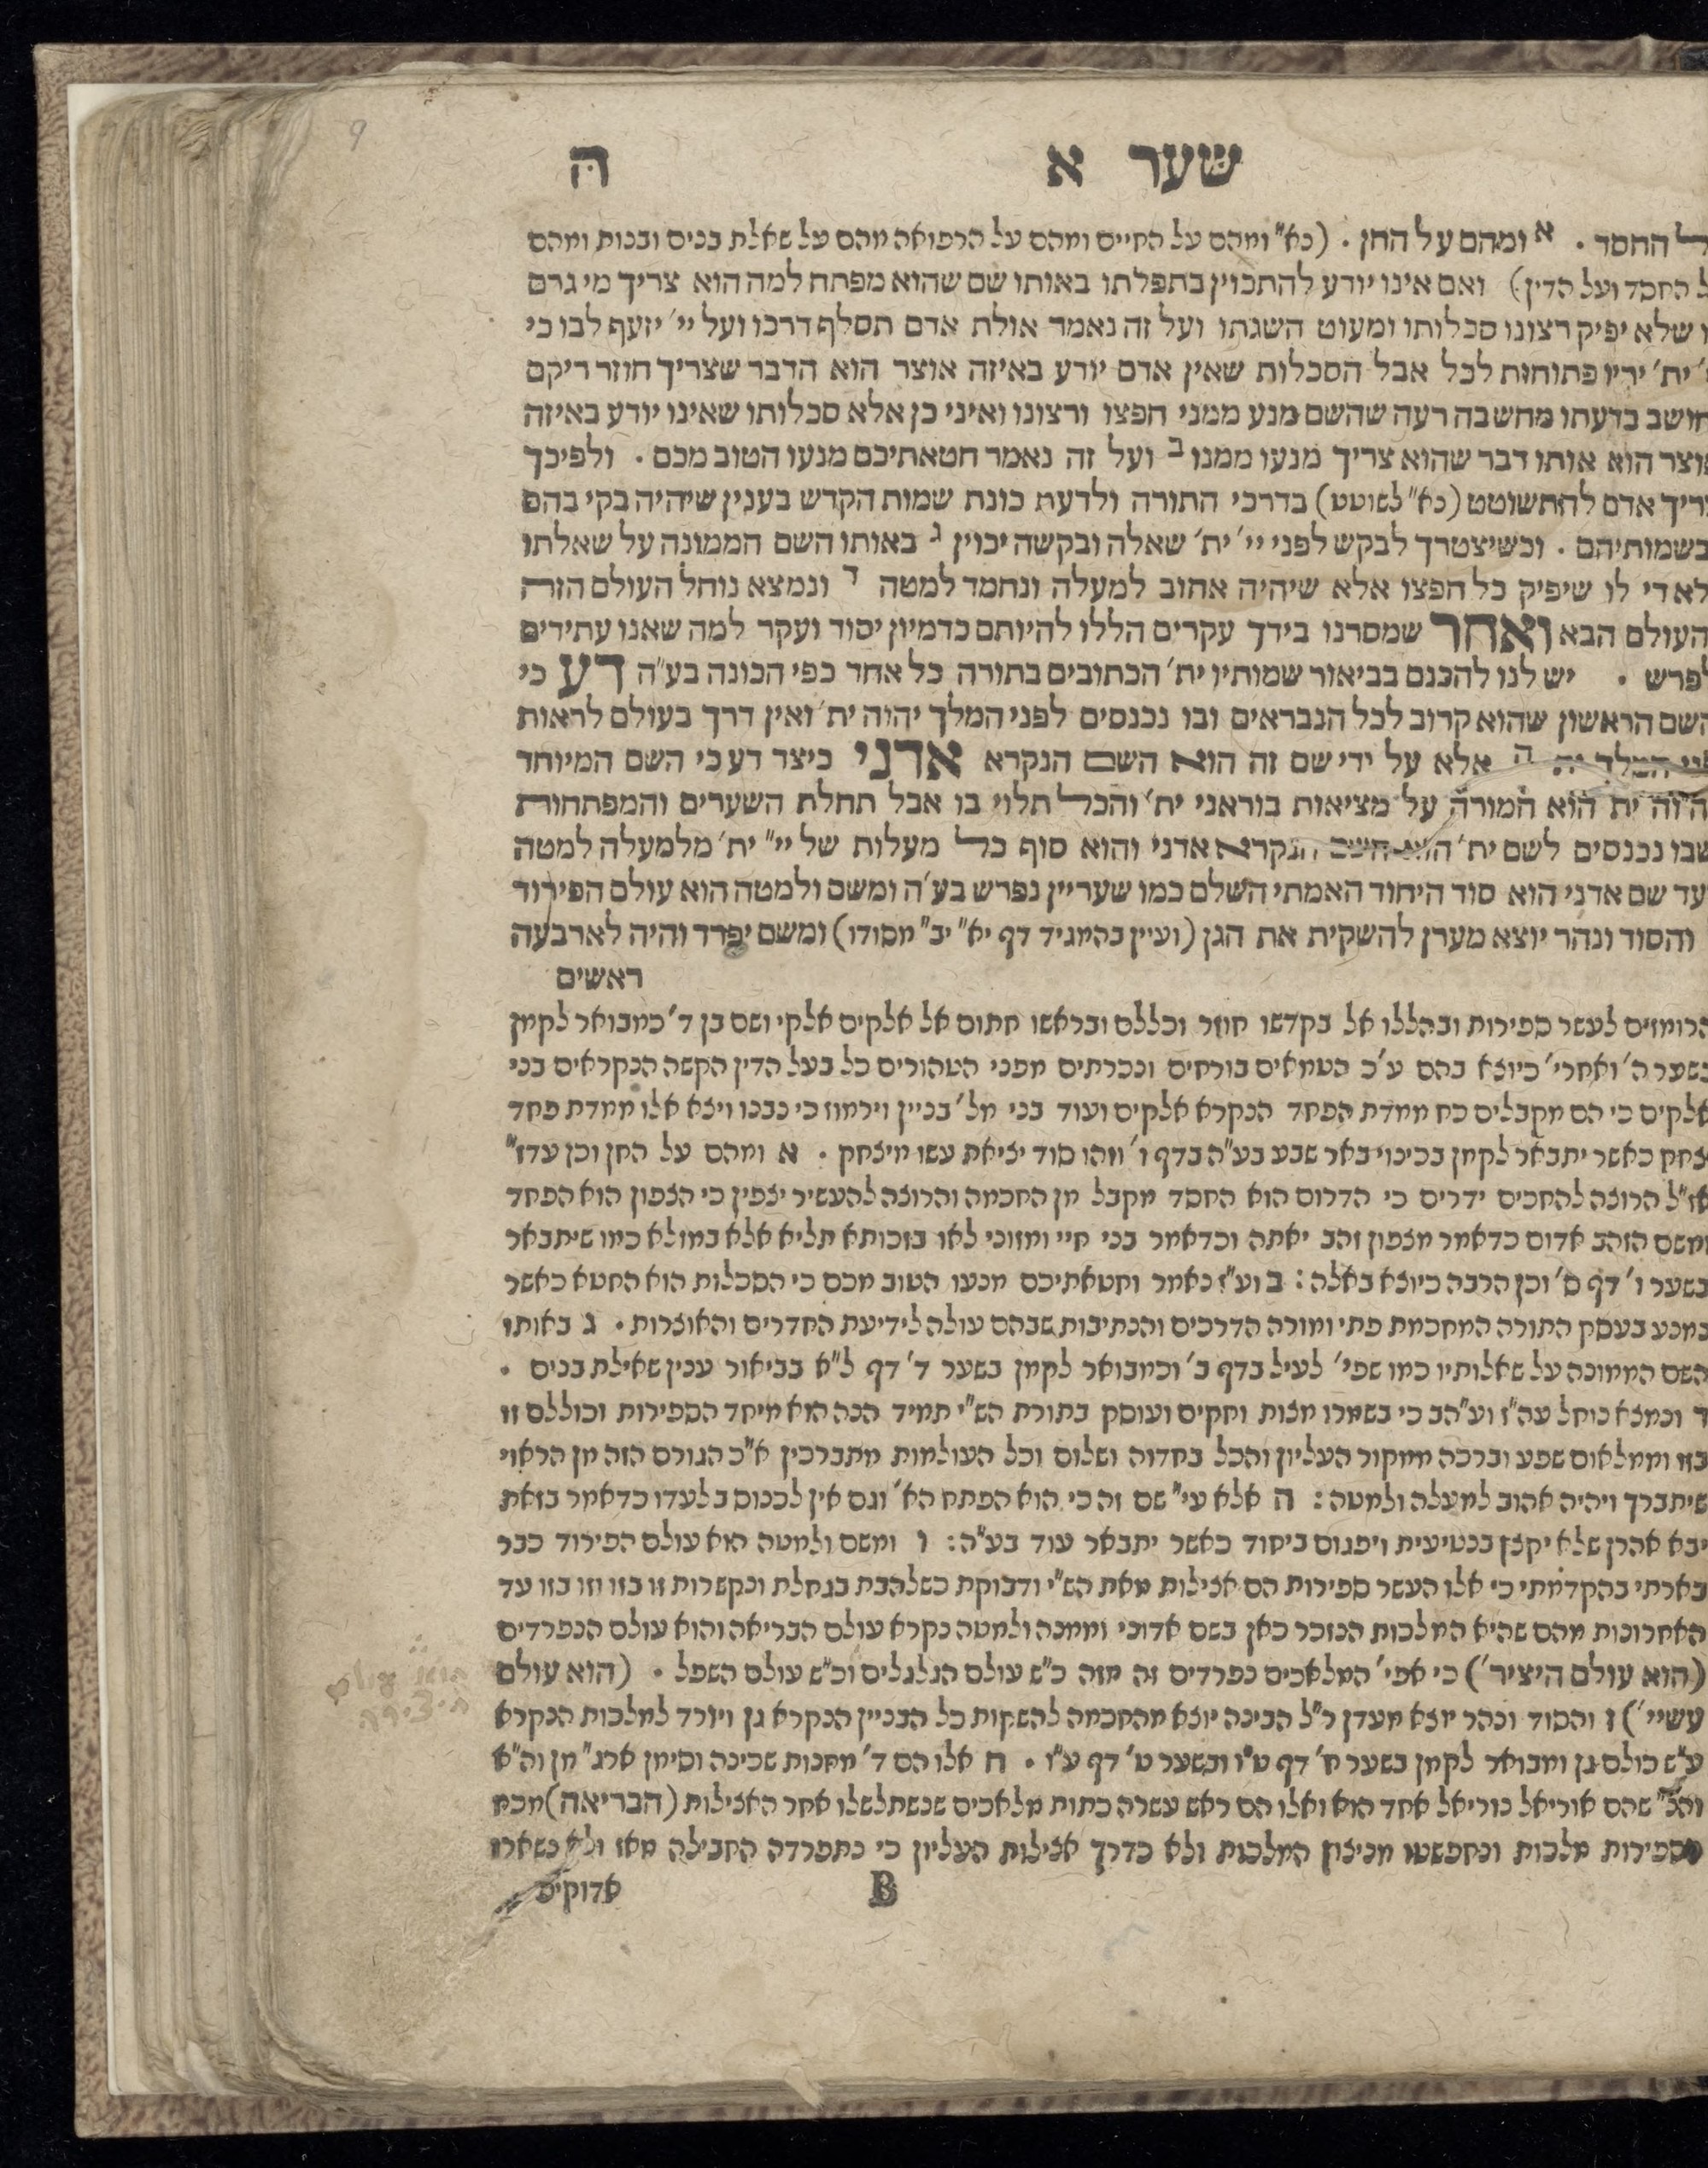 9
שער א ה
החסד . א ומהם על החן . (נא" ומהם על החיים ומהם על הרפואה מהם על שאלת בנים ובנות ומהם
החסד ועל הדין) ואם אינו יודע להתכוין בתפלתו באותו שם שהוא מפתח למה הוא צריך מי גרם
שלא יפיק רצונו סכלותו ומעוט השגתו ועל זה נאמר אולת אדם תסלף דרכו ועל יי' יזעף לבו כי
ית' ידיו פתוחות לכל אבל הסכלות שאין אדם יודע באיזה אוצר הוא הדבר שצריך חוזר ריקם
חושב בדעתו מחשבה רעה שהשם מנע ממני חפצו ורצונו ואיני כן אלא סכלותו שאינו יודע באיזה
אוצר הוא אותו דבר שהוא צריך מנעו ממנו ב ועל זה נאמר חטאתיכם מנעו הטוב מכם . ולפיכך
צריך אדם להתשוטט (נא" לשוטט) בדרכי התורה ולדעת כונת שמות הקדש בענין שיהיה בקי בהם
בשמותיהם . וכשיצטרך לבקש לפני יי' ית' שאלה ובקשה יכוין ג באותו השם הממונה על שאלתו
לא די לו שיפיק כל חפצו אלא שיהיה אהוב למעלה ונחמד למטה ד ונמצא נוחל העולם הזה
העולם הבא ואחר שמסרנו בידך עקרים הללו להיותם כדמיון יסוד ועקר למה שאנו עתידים
לפרש . יש לנו להכנס בביאור שמותיו ית' הכתובים בתורה כל אחד כפי הכונה בע"ה דע כי
השם הראשון שהוא קרוב לכל הנבראים ובו נכנסים לפני המלך יהוה ית' ואין דרך בעולם לראות
פני המלך יה ה אלא על ידי שם זה הוא השם הנקרא אדני כיצד דע כי השם המיוחד
ית הוא המורה על מציאות בוראני ית' והכל תלוי בו אבל תחלת השערים והמפתחות
שבו נכנסים לשם ית' הוא השם הנקרא אדני והוא סוף כל מעלות של יי" ית' מלמעלה למטה
עד שם אדני הוא סוד היחוד האמתי השלם כמו שעדיין נפרש בע'ה ומשם ולמטה הוא עולם הפירוד
והסוד ונהר יוצא מערן להשקית את הגן (ועיין בהמגיד דף יא" יב" מסודו) ומשם יפרד והיה לארבעה
ראשים
הרומזים לעשר ספירות ובהללו אל בקדשו חוזר וכללם ובראשו חתום אל אלקים אלקי ושם בן ד' כמבואר לקמן
בשער ה' ואחרי' כיוצא בהם ע'כ הטמאים בורחים ונכרתים מפני הטהורים כל בעל הדין הקשה הנקראים בני
אלקים כי הם מקבלים כח ממדת הפחד הנקרא אלקים ועוד בני מל' בניין וירמוז כי נבנו ויצא אלו ממדת פחד
יצחק כאשר יתבאר לקמן בכינוי באר שבע בע"ה בדף ו' וזהו סוד יציאת עשו מיצחק . א ומהם על החן וכן עדז"
אז"ל הרוצה להחכים ידרים כי הדרום הוא החסד מקבל מן החכמה והרוצה להעשיר יצפין כי הצפון הוא הפחד
ומשם הזהב אדום כדאמר מצפון זהב יאתה וכדאמר בני חיי ומזוני לאו בזכותא תליא אלא במזלא כמו שיתבאר
בשער ו' דף ס' וכן הרבה כיוצא באלה : ב וע"ז נאמר וחטאתיכם מנעו הטוב מכם כי הסכלות הוא החטא כאשר
נמנע בעסק התורה המחכמת פתי ומורה הדרכים והנתיבות שבהם עולה לידיעת החדרים והאוצרות . ג באותו
השם הממונה על שאלותיו כמו שפי' לעיל בדף ב' וכמבואר לקמן בשער ד' דף ל"א בביאור ענין שאילת בנים .
ד ונמצא נוחל עה"ז וע"הב כי בשמרו מצות וחקים ועוסק בתורת הש"י תמיד הנה הוא מיחד הספירות וכוללם זו
בזו וממלאום שפע וברכה ממקור העליון והכל בחדוה ושלום וכל העולמות מתברכין א"כ הגורם הזה מן הראוי
שיתברך ויהיה אהוב למעלה ולמטה : ה אלא ע"י שם זה כי הוא הפתח הא' וגם אין לכנוס בלעדו כדאמר בזאת
יבא אהרן שלא יקצץ בנטיעית ויפגום ביחוד כאשר יתבאר עוד בע"ה : ו ומשם ולמטה הוא עולם הפירוד כבר
בארתי בהקדמתי כי אלו העשר ספירות הם אצילות מאת הש"י ודבוקת כשלהבת בגחלת ונקשרות זו בזו וזו בזו עד
האחרונות מהם שהיא המלכות הנזכר כאן בשם אדוני וממנה ולמטה נקרא עולם הבריאה והוא עולם הנפרדים
(הוא עולם היציר') כי אפי' המלאכים נפרדים זה מזה כ"ש עולם הגלגלים וכ"ש עולם השפל . (הוא עולם
עשיי') ז והסוד ונהר יוצא מעדן ר"ל הבינה יוצא מהחכמה להשקות כל הבניין הנקרא גן ויורד למלכות הנקרא
ע"ש כולם גן ומבואר לקמן בשער ח' דף ט"ו ובשער ט' דף ע"ו . ח אלו הם ד' מחנות שכינה וסימן ארג" מן וה"א
שהם אוריאל נוריאל אחד הוא ואלו הם ראש עשרה כתות מלאכים שנשתלשלו אחר האצילות (הבריאה) מכח
ספירות מלכות ונתפשטו מניצוץ המלכות ולא כדרך אצילות העליון כי נתפרדה החבילה מאז ולא נשארו
B אדוקים
הוא עולם
היצירה